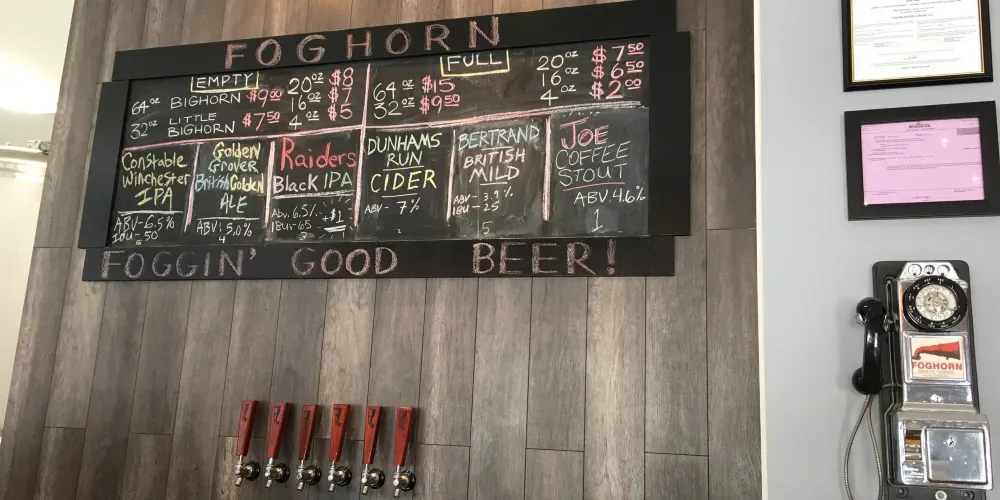 FOGHORN
EMPTY
64oz BIGHORN $9.00
32oz LITTLE BIGHORN $7.50
20oz $8
16oz $7
4oz $5
FULL
64oz $15
32oz $9.50
20oz $7.50
16oz $6.50
4oz $2.00
Constable
Winchester
IPA
ABV-6.5%
IBU-50
Golden
Grover
British Golden
ALE
ABV: 5.0%
4
Raiders
Black IPA
Abv. 6.5%
IBU-65
+$1
3
DUNHAMS
RUN
CIDER
ABV- 7%
2
BERTRAND
BRITISH
MILD
ABV- 3.9%
IBU- 25
5
JOE
COFFEE
STOUT
ABV 4.6%
1
FOGGIN' GOOD BEER!
FOGHORN